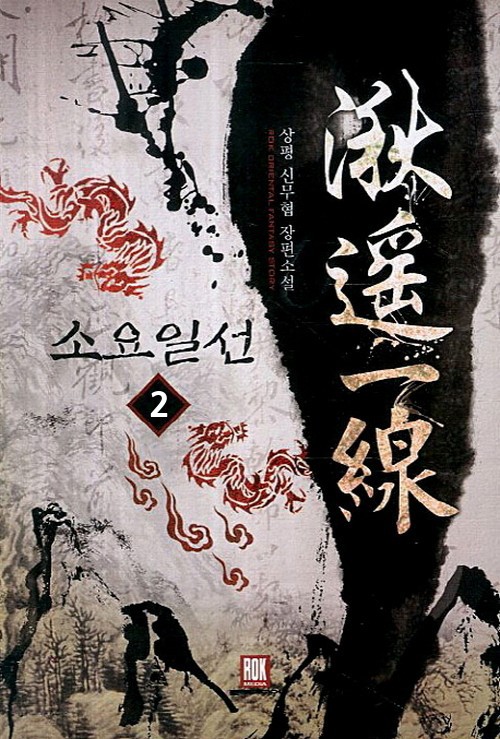 遥一線
상평 신무협 장편소설
ROK ORIENTAL FANTASY STORY
소요일선
2
ROK
MEDIA